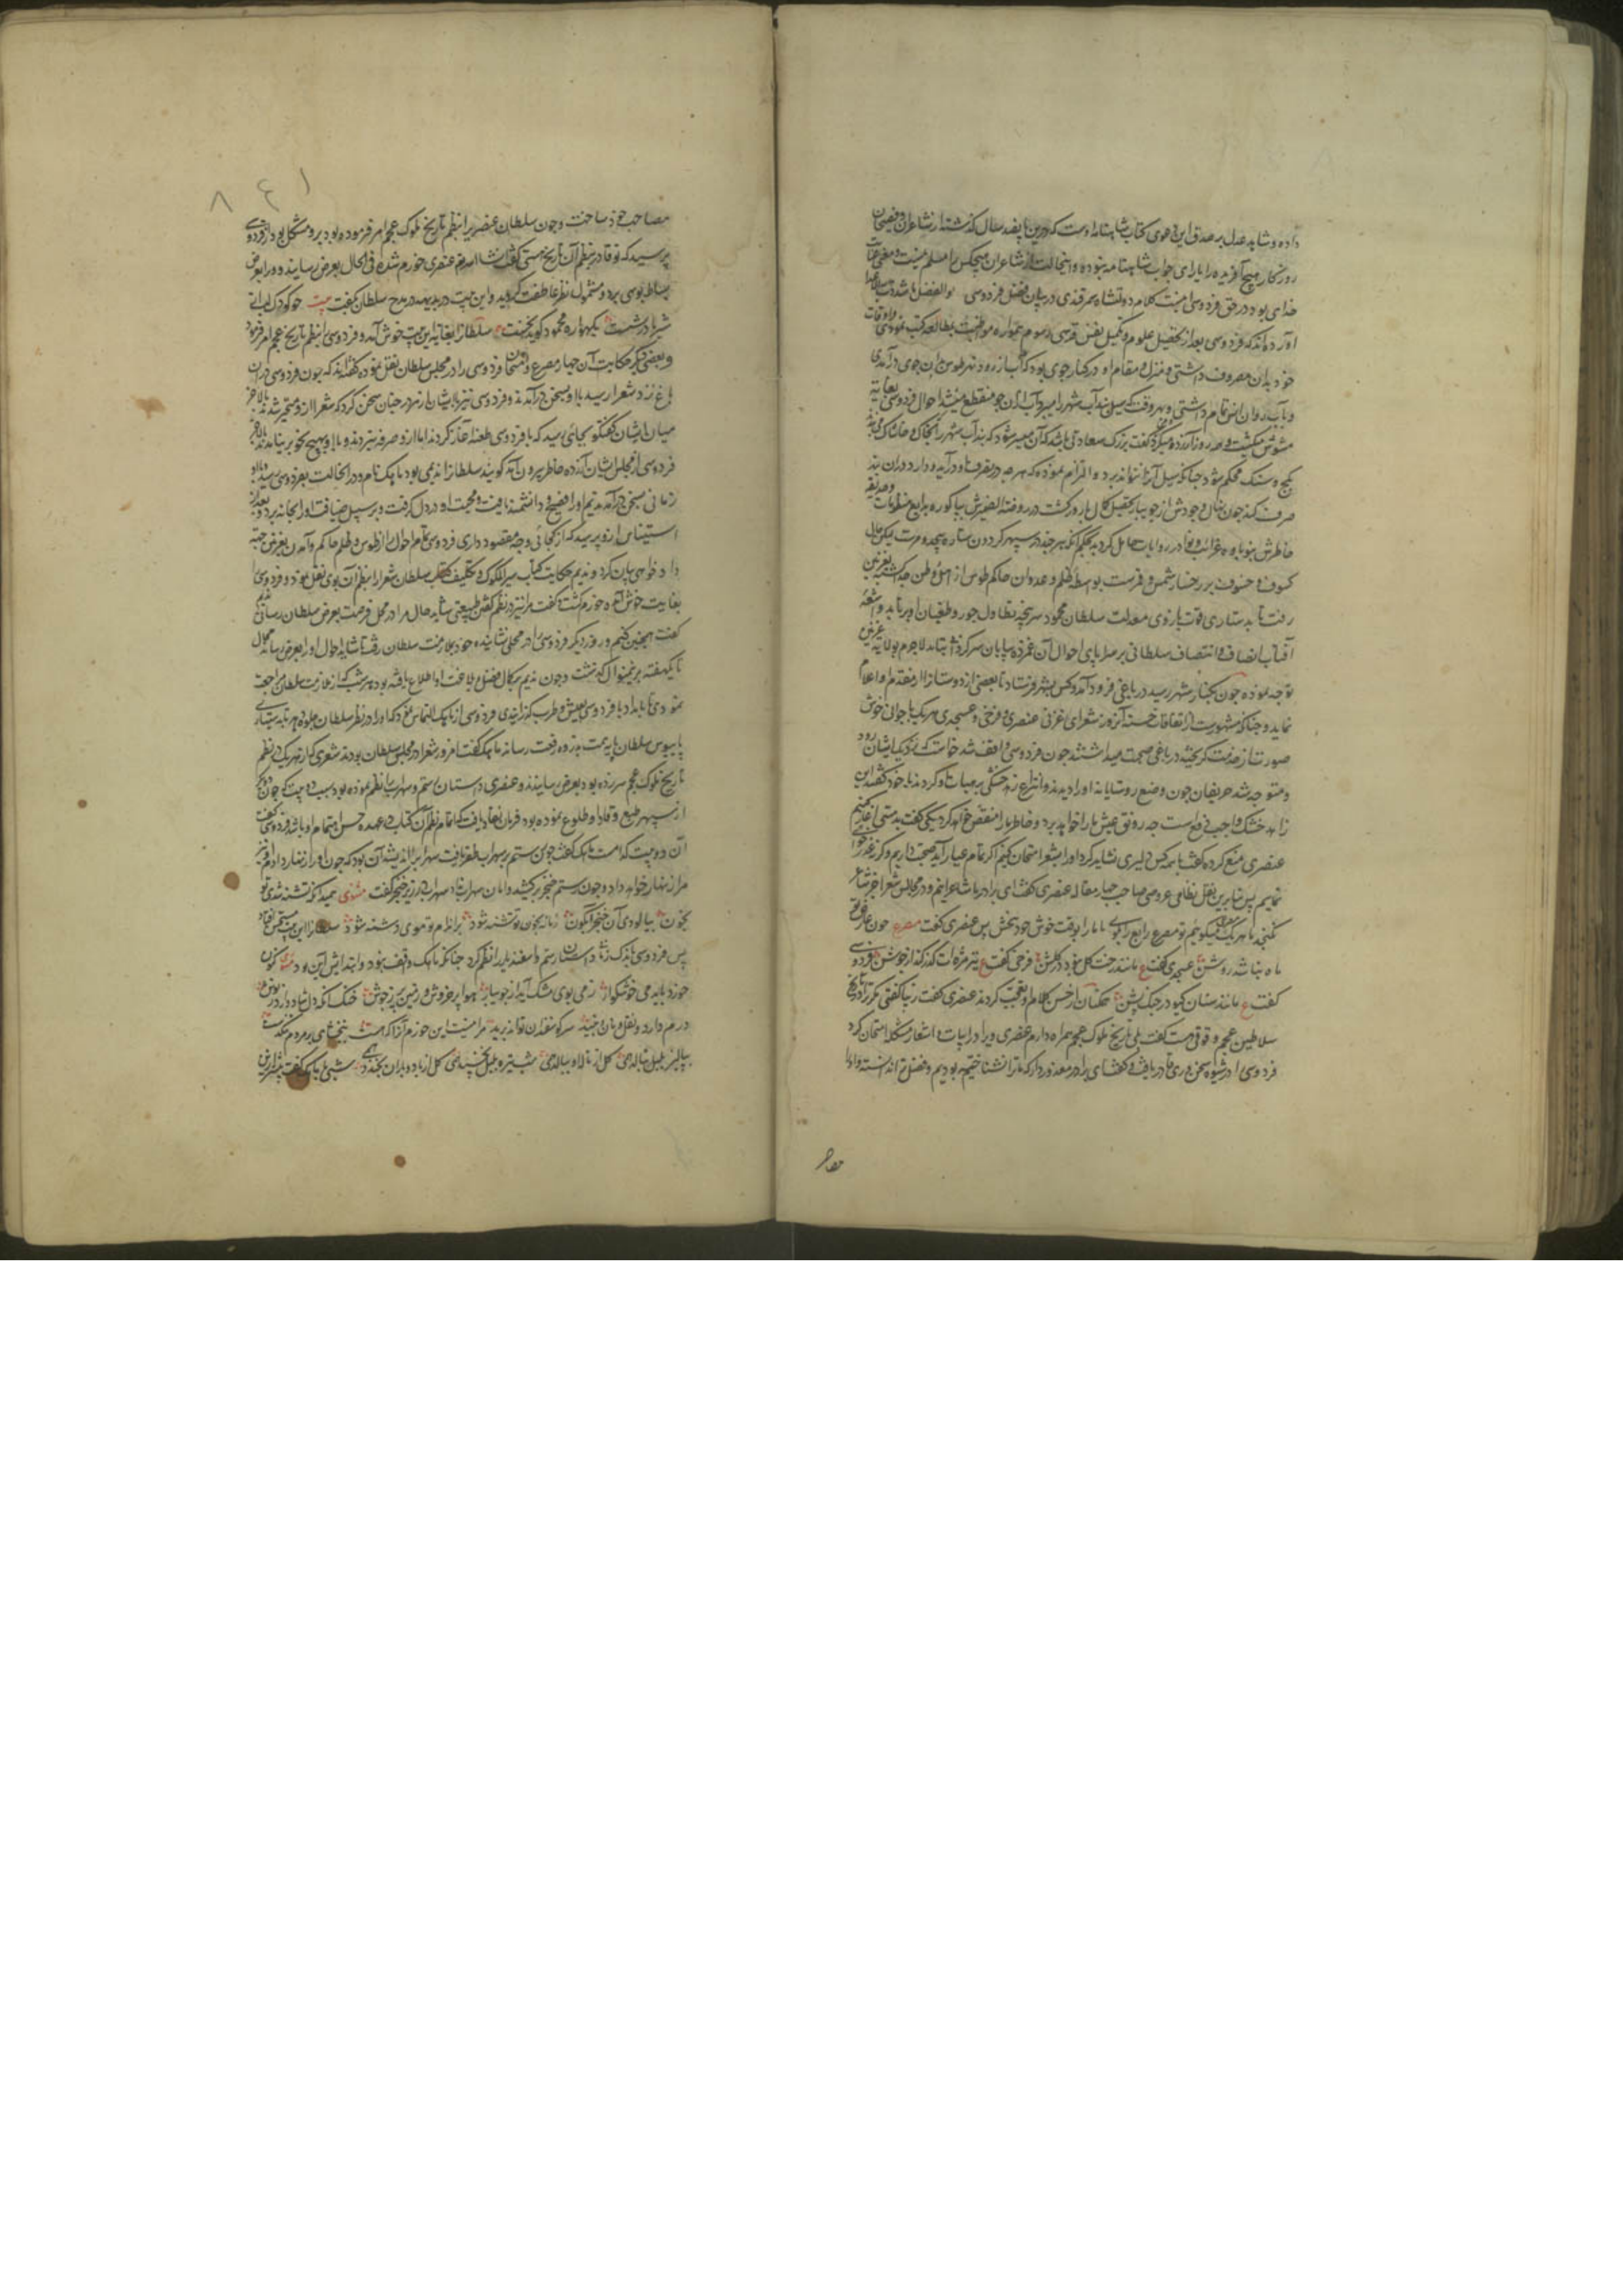 داده و شاهد عدل بر صدق این دعوی کتاب شاهنامه اوست که درین پانصد سال گذشته از شاعران و فصیحان
روزگار هیچ آفریده را یارای جواب شاهنامه نبوده و این حالت از شاعران هیچکس را مسلم نیست و معنی عنایت
خدای بود در حق فردوسی اینست کلام دولتشاه سمرقندی در بیان فضل فردوسی
آورده‌اند که فردوسی بعد از تحصیل علوم و تکمیل نفس قدسی رسوم همواره مواظبت بمطالعه کتب نمودی و اوقات
خود بدان مصروف داشتی و منزل و مقام او در کنار جوی بود که آب از رود طوس بدان جوی در آمدی
و بآب روان انس تمام داشتی و هر وقت که سیل بند آب شهر را میبرد آب ازان جو منقطع میشد احوال فردوسی بغایت
مشوش میگشت و هر روز آزرده میگردید گفت بزرگ سعادتی باشد که آن میسر شود که بند آب شهر را که بخاک و خاشاک می‌بندند
بگچ و سنگ محکم شود چنانکه سیل آنرا نتواند برد و التزام نموده که هر چه در تصرف او در آید
صرف کند چون نهال وجودش از جویبار تحصیل کمال بارور گشت و در روضة الصفای
خاطرش
کسوف و خسوف بر رخسار شمس و قمرست بواسطه ظلم و عدوان حاکم طوس از اهل و وطن جدا گشته بغزنین
رفت تا بدستیاری قوت بازوی معدلت سلطان محمود سرپنجه تطاول جور و طغیان او برتابد و اشعه
آفتاب انصاف و انتصاف سلطانی بر سراپای احوال آن غمزده بیابان سرگردانی بتابد لاجرم بولایت غزنین
توجه نموده چون بکنار شهر رسید در باغی فرود آمد و کس بشهر فرستاد تا بعضی از دوستان را از مقدم او اعلام
نماید و چنانکه مشهورست از اتفاقات حسنه آنروز شعرای غزنی عنصری و فرخی و عسجدی هر یک با جوانی خوش
صورت از خدمت گریخته در باغی صحبت میداشتند چون فردوسی واقف شد خواست که نزدیک ایشان رود
و متوجه شد حریفان چون وضع روستایانه او را دیدند و انواع زهد خشکی بر هیات او کردند با خود گفتند این
زاهد خشک واجب دفع است چه رونق عیش ما را خواهد برد و خاطر ما را منغص خواهد کرد یکی گفت بدمستی آغاز کنیم
عنصری منع کرده گفت با همه کس دلیری نشاید کرد او را بشعر امتحان کنیم اگر تمام عیار آید صحبت داریم و گرنه عذر خواهی
نماییم پس بنابرین بنقل نظامی عروضی صاحب چهار مقاله عنصری گفت ای برادر ما شاعرانیم و در مجالس شعرا جز شاعر
نگنجد ما هر یک مصرعی میگوییم تو مصرع رابع را بگوی تا ما را بوقت خوش خود بخش پس عنصری گفت مصرع چون عارض تو
ماه نباشد روشن عسجدی گفت ع مانند رخت گل نبود در گلشن فرخی گفت ع تیر مژه‌ات گذر کند از جوشن فردوسی
گفت ع مانند سنان گیو در جنگ پشن همگنان از حسن کلام او تعجب کردند عنصری گفت زیبا گفتی مگر ترا در تاریخ
سلاطین عجم وقوفی هست گفت بلی تاریخ ملوک عجم همراه دارم عنصری ویرا در ابیات و اشعار مشکله امتحان کرد
فردوسی را در شیوه سخن‌وری قادر یافت و گفت ای برادر معذور دار که ما ترا نشناخته بودیم و فضل ترا ندانسته و او را
مصاحب
مصاحب خود ساخت و چون سلطان عنصری را بنظم تاریخ ملوک عجم امر فرموده بود و برو مشکل بود از فردوسی
پرسید که تو قادر بنظم آن تاریخ هستی گفت انشاء الله عنصری خورم شده فی الحال بعرض رسانید و ویرا بعرض
بساط بوسی برد و مشمول نظر عاطفت گردید و این بیت در بدیهه در مدح سلطان گفت بیت چو کودک لب از
شیر مادر بشست بگهواره محمود گوید نخست سلطان را بغایت این بیت خوش آمد و فردوسی را بنظم تاریخ عجم امر فرمود
و بعضی دیگر حکایت آن چهار مصرع و امتحان فردوسی را در مجلس سلطان نقل نموده گفته‌اند که چون فردوسی در آن
باغ نزد شعرا رسید با او بسخن در آمدند و فردوسی نیز با ایشان از هر در چنان سخن کرد که شعرا ازو متحیر شدند بالاخر
میان ایشان گفتگو بجائی رسید که با فردوسی طعنه آغاز کردند اما ازو صرفه نبردند و با او بهیچ نحو بر نیامدند بالاخر
فردوسی از مجلس ایشان آزرده خاطر بیرون آمد گویند سلطان را ندیمی بود ماهک نام و در ان حالت بفردوسی رسید و با او
زمانی بسخن در آمد ندیم او را فصیح و دانشمند یافت و محبت او در دل گرفت و بر سبیل ضیافت او را بخانه برد و بعد از
استیناس ازو پرسید که از کجائی و چه مقصود داری فردوسی تمام احوال را از طوس و ظلم حاکم و آمدن بغزنین جهة
داد خواهی بیان کرد و ندیم حکایت کتاب سیر الملوک و تکلیف سلطان شعرا را بنظم آن بوی نقل نمود و فردوسی را
بغایت خوش آمد و خورم گشت و گفت مرا نیز در نظم گفتن طبیعتی هست شاید حال مرا در محل فرصت بعرض سلطان رسانی ندیم
گفت همچنین کنیم و روز دیگر فردوسی را در محلی نشانیده خود بملازمت سلطان رفت تا شاید احوال او را بعرض رساند مجال
تا یکهفته برینمنوال گذشت و چون ندیم بر کمال فضل و بلاغت او اطلاع یافته بود هر شب که از ملازمت سلطان مراجعت
نمودی تا بامداد با فردوسی بعیش و طرب گذرانیدی فردوسی از ماهک التماس نمود که او را در نظر سلطان جلوه دهد تا بدستیاری
پابوس سلطان پایه همت بذروه رفعت رساند ماهک گفت امروز شعرا در مجلس سلطان بودند شعری که از هر یک در نظم
تاریخ ملوک عجم سر زده بود بعرض رسانیدند و عنصری داستان رستم و سهراب را نظم نموده بود بسبب دو بیت که چون
از سپهر طبع وقاد او طلوع نموده بود فرمان نفاذ یافت که اتمام نظم آن کتاب در عهده حسن اهتمام او باشد فردوسی گفت
آن دو بیت کدامست ماهک گفت چون رستم بر سهراب ظفر یافت سهراب را اندیشه آن بود که چون او را زنهار دادم او نیز
مرا زنهار خواهد داد و چون رستم خنجر بر کشید و امان سهراب نداد سهراب در زیر خنجر گفت مثنوی هر آنگه که تشنه شدی تو
بخون بیالودی آن خنجر آبگون زمانه بخون تو تشنه شود بر اندام تو موی دشنه شود سلطان را این بیت مستحسن افتاد
پس فردوسی باندک زمان داستان رستم و اسفندیار را نظم کرد چنانکه ماهک واقف نبود و ابتدایش این بود مثنوی کنون
خورد باید می خوشگوار که می بوی مشک آید از جویبار هوا پر خروش و زمین پر ز جوش خنک آنکه دل شاد دارد بنوش
درم دارد و نقل و نان و نبید سر گوسفندی تواند برید مرا نیست این خرم آنرا که هست ببخشای بر مردم تنگدست
بپالیز بلبل بنالد همی گل از ناله او ببالد همی شب تیره بلبل نخسپد همی گل از باد و باران بجنبد همی شبی با ماهک گفت پیشتر ازین
١٤٨